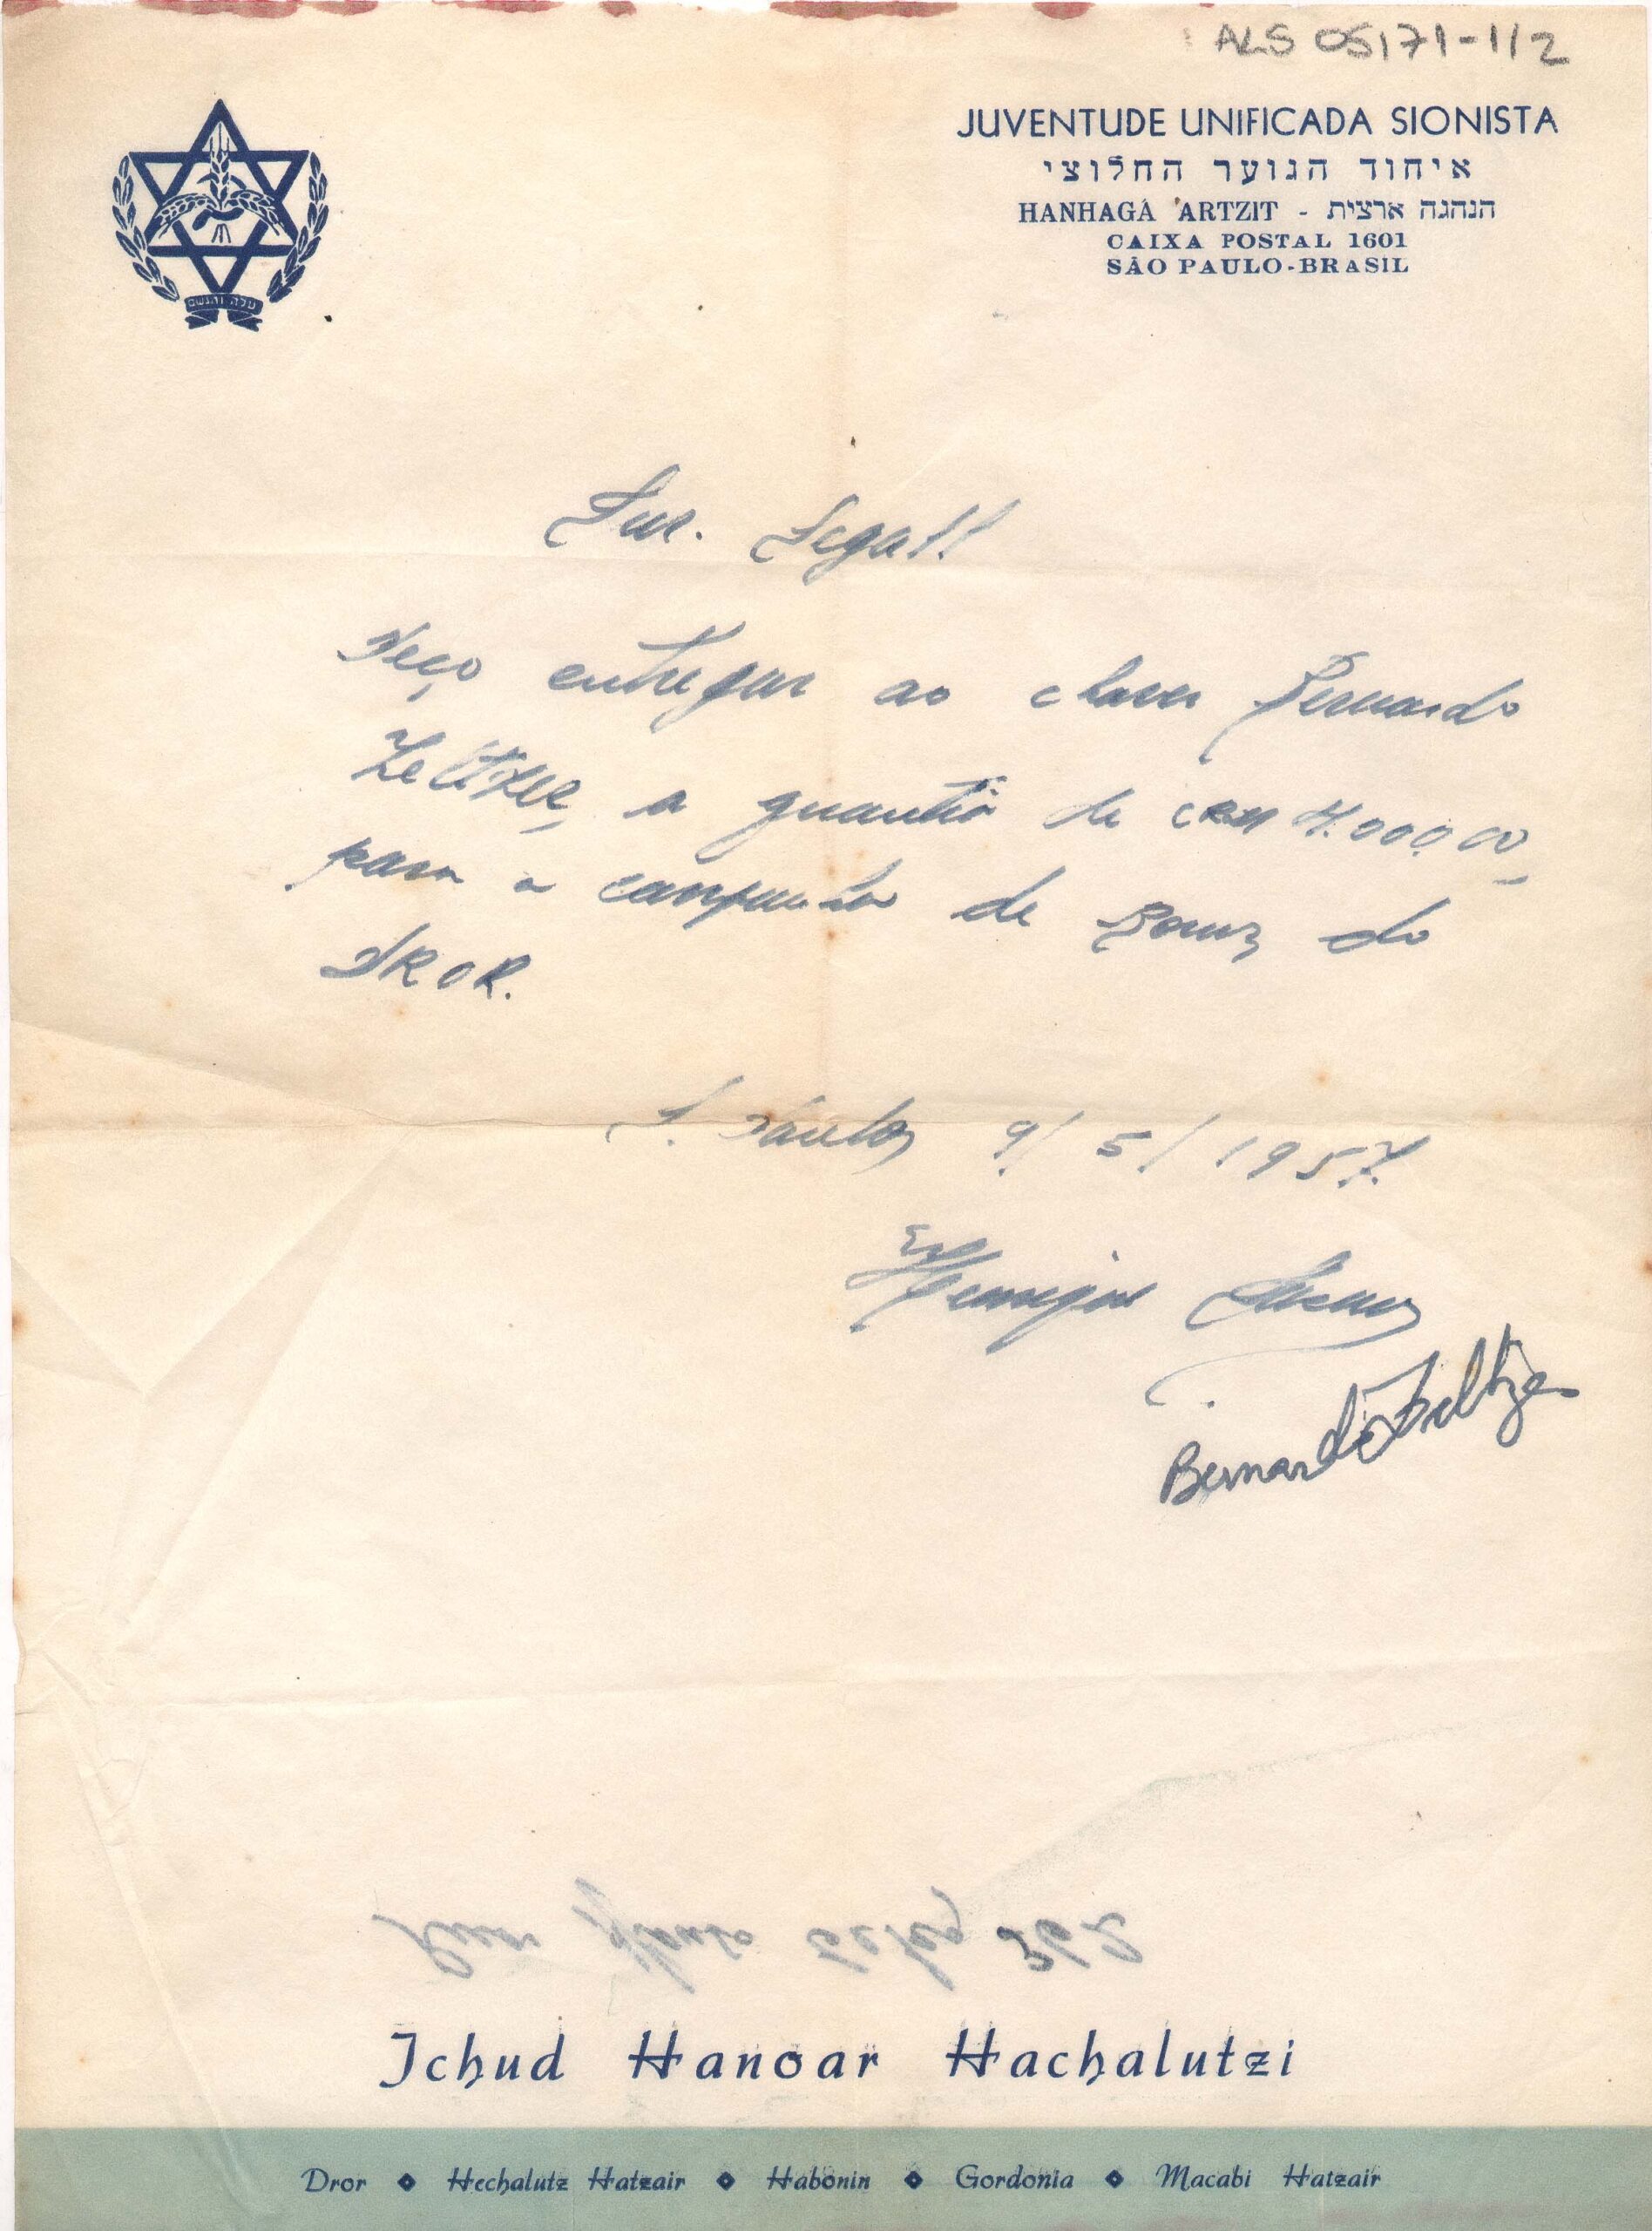 ALS 05171-1/2
JUVENTUDE UNIFICADA SIONISTA
איחוד הנוער החלוצי
HANHAGÁ ARTZIT - הנהגה ארצית
CAIXA POSTAL 1601
SÃO PAULO-BRASIL
עלה והגשם
Snr. Segall
Peço entregar ao chaver Bernardo
Zeltzer, a quantia de CR$ 4.000,00
para a campanha de do
DROR.
S. Paulo, 9/5/1957.
Bernardo Zeltzer
Ichud Hanoar Hachalutzi
Dror ◆ Hechalutz Hatzair ◆ Habonin ◆ Gordonia ◆ Macabi Hatzair